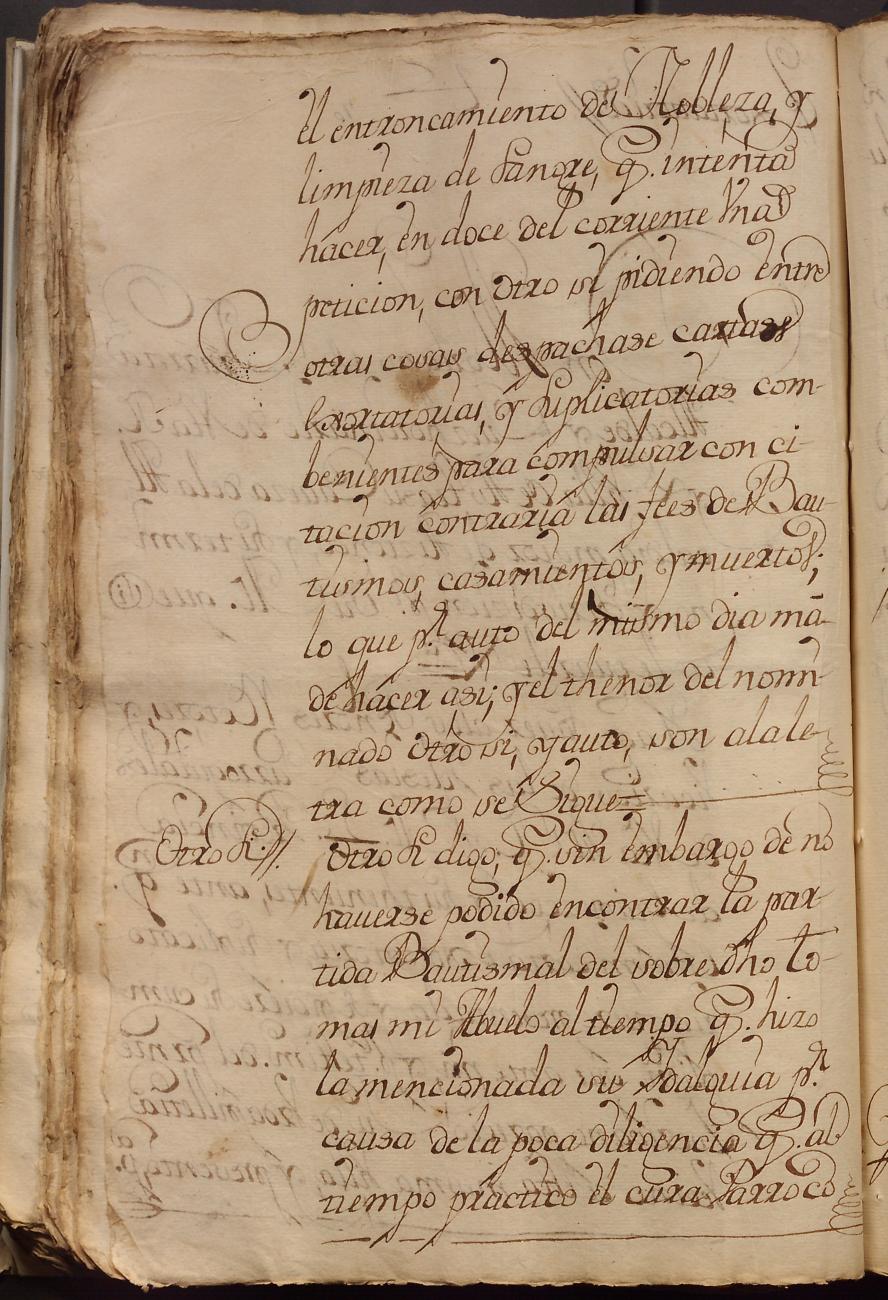 el entroncamiento de Nobleza, y
limpieza de Sangre, q. intenta
hacer, en doce del corriente Vna
peticion, con otro si pidiendo entre
otras cosas despachase cartas
Exortatorias, y Suplicatorias com-
benientes para compulsar con ci-
tacion contraria las fees de Bau-
tismos, casamientos, y muertos;
lo que pr. auto del mismo dia mã-
de hacer asi; y el thenor del nomi-
nado Otro si, y auto, son a la le-
tra como se Sigue
Otro Si //. Otro Si digo; q. sin embargo de no
hauerse podido encontrar la par-
tida Bautismal del sobre dho To-
mas mi Abuelo al tiempo q. hizo
la mencionada su Ydalguia pr.
causa de la poca diligencia q. al
tiempo practico el cura Parroco